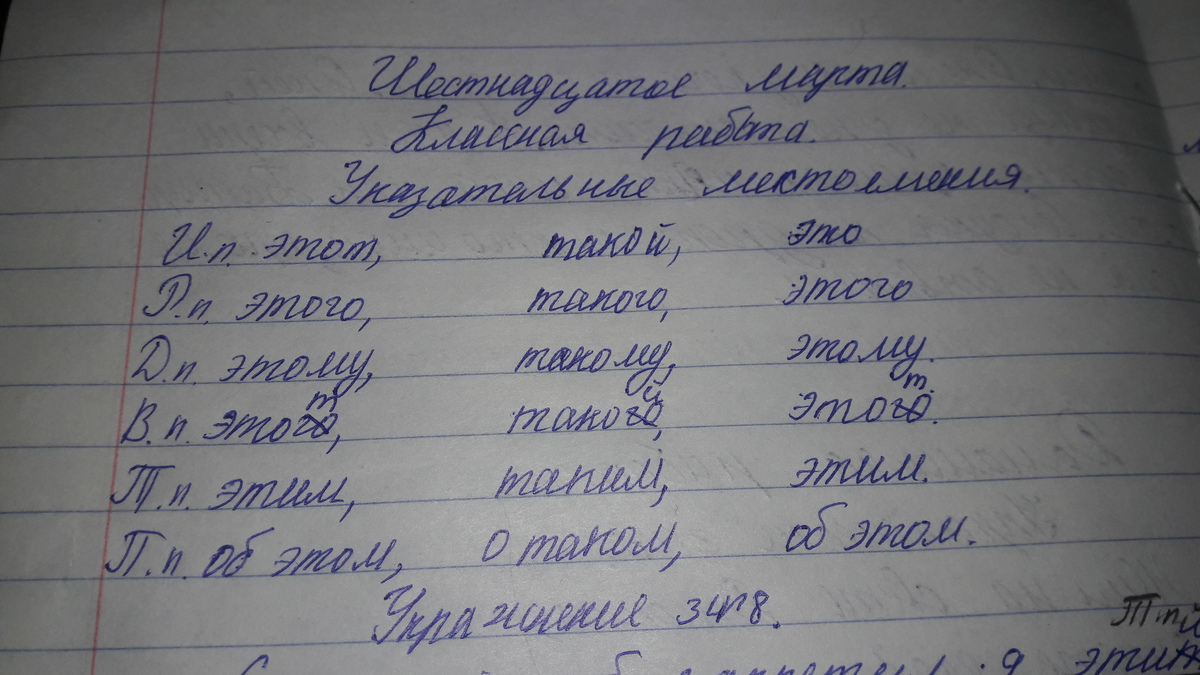 Шестнадцатое марта.
Классная работа.
Указательные местоимения.
И.п. этот, такой, это
Р.п. этого, такого, этого
Д.п. этому, такому, этому.
В.п. этот, такой, этот.
Т.п. этим, таким, этим.
П.п. об этом, о таком, об этом.
Упражнение
Т.п.